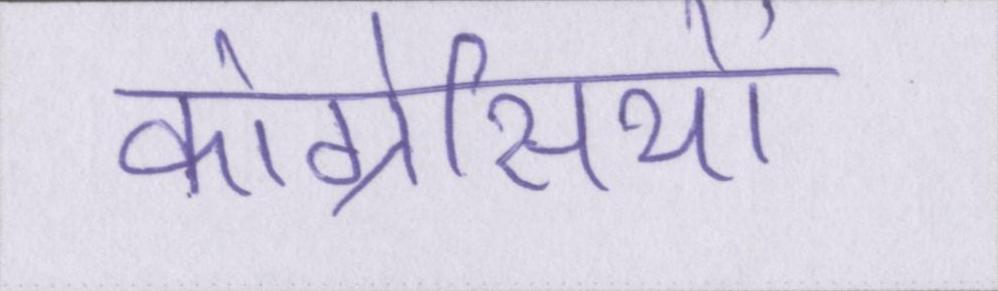 कांग्रेसियों